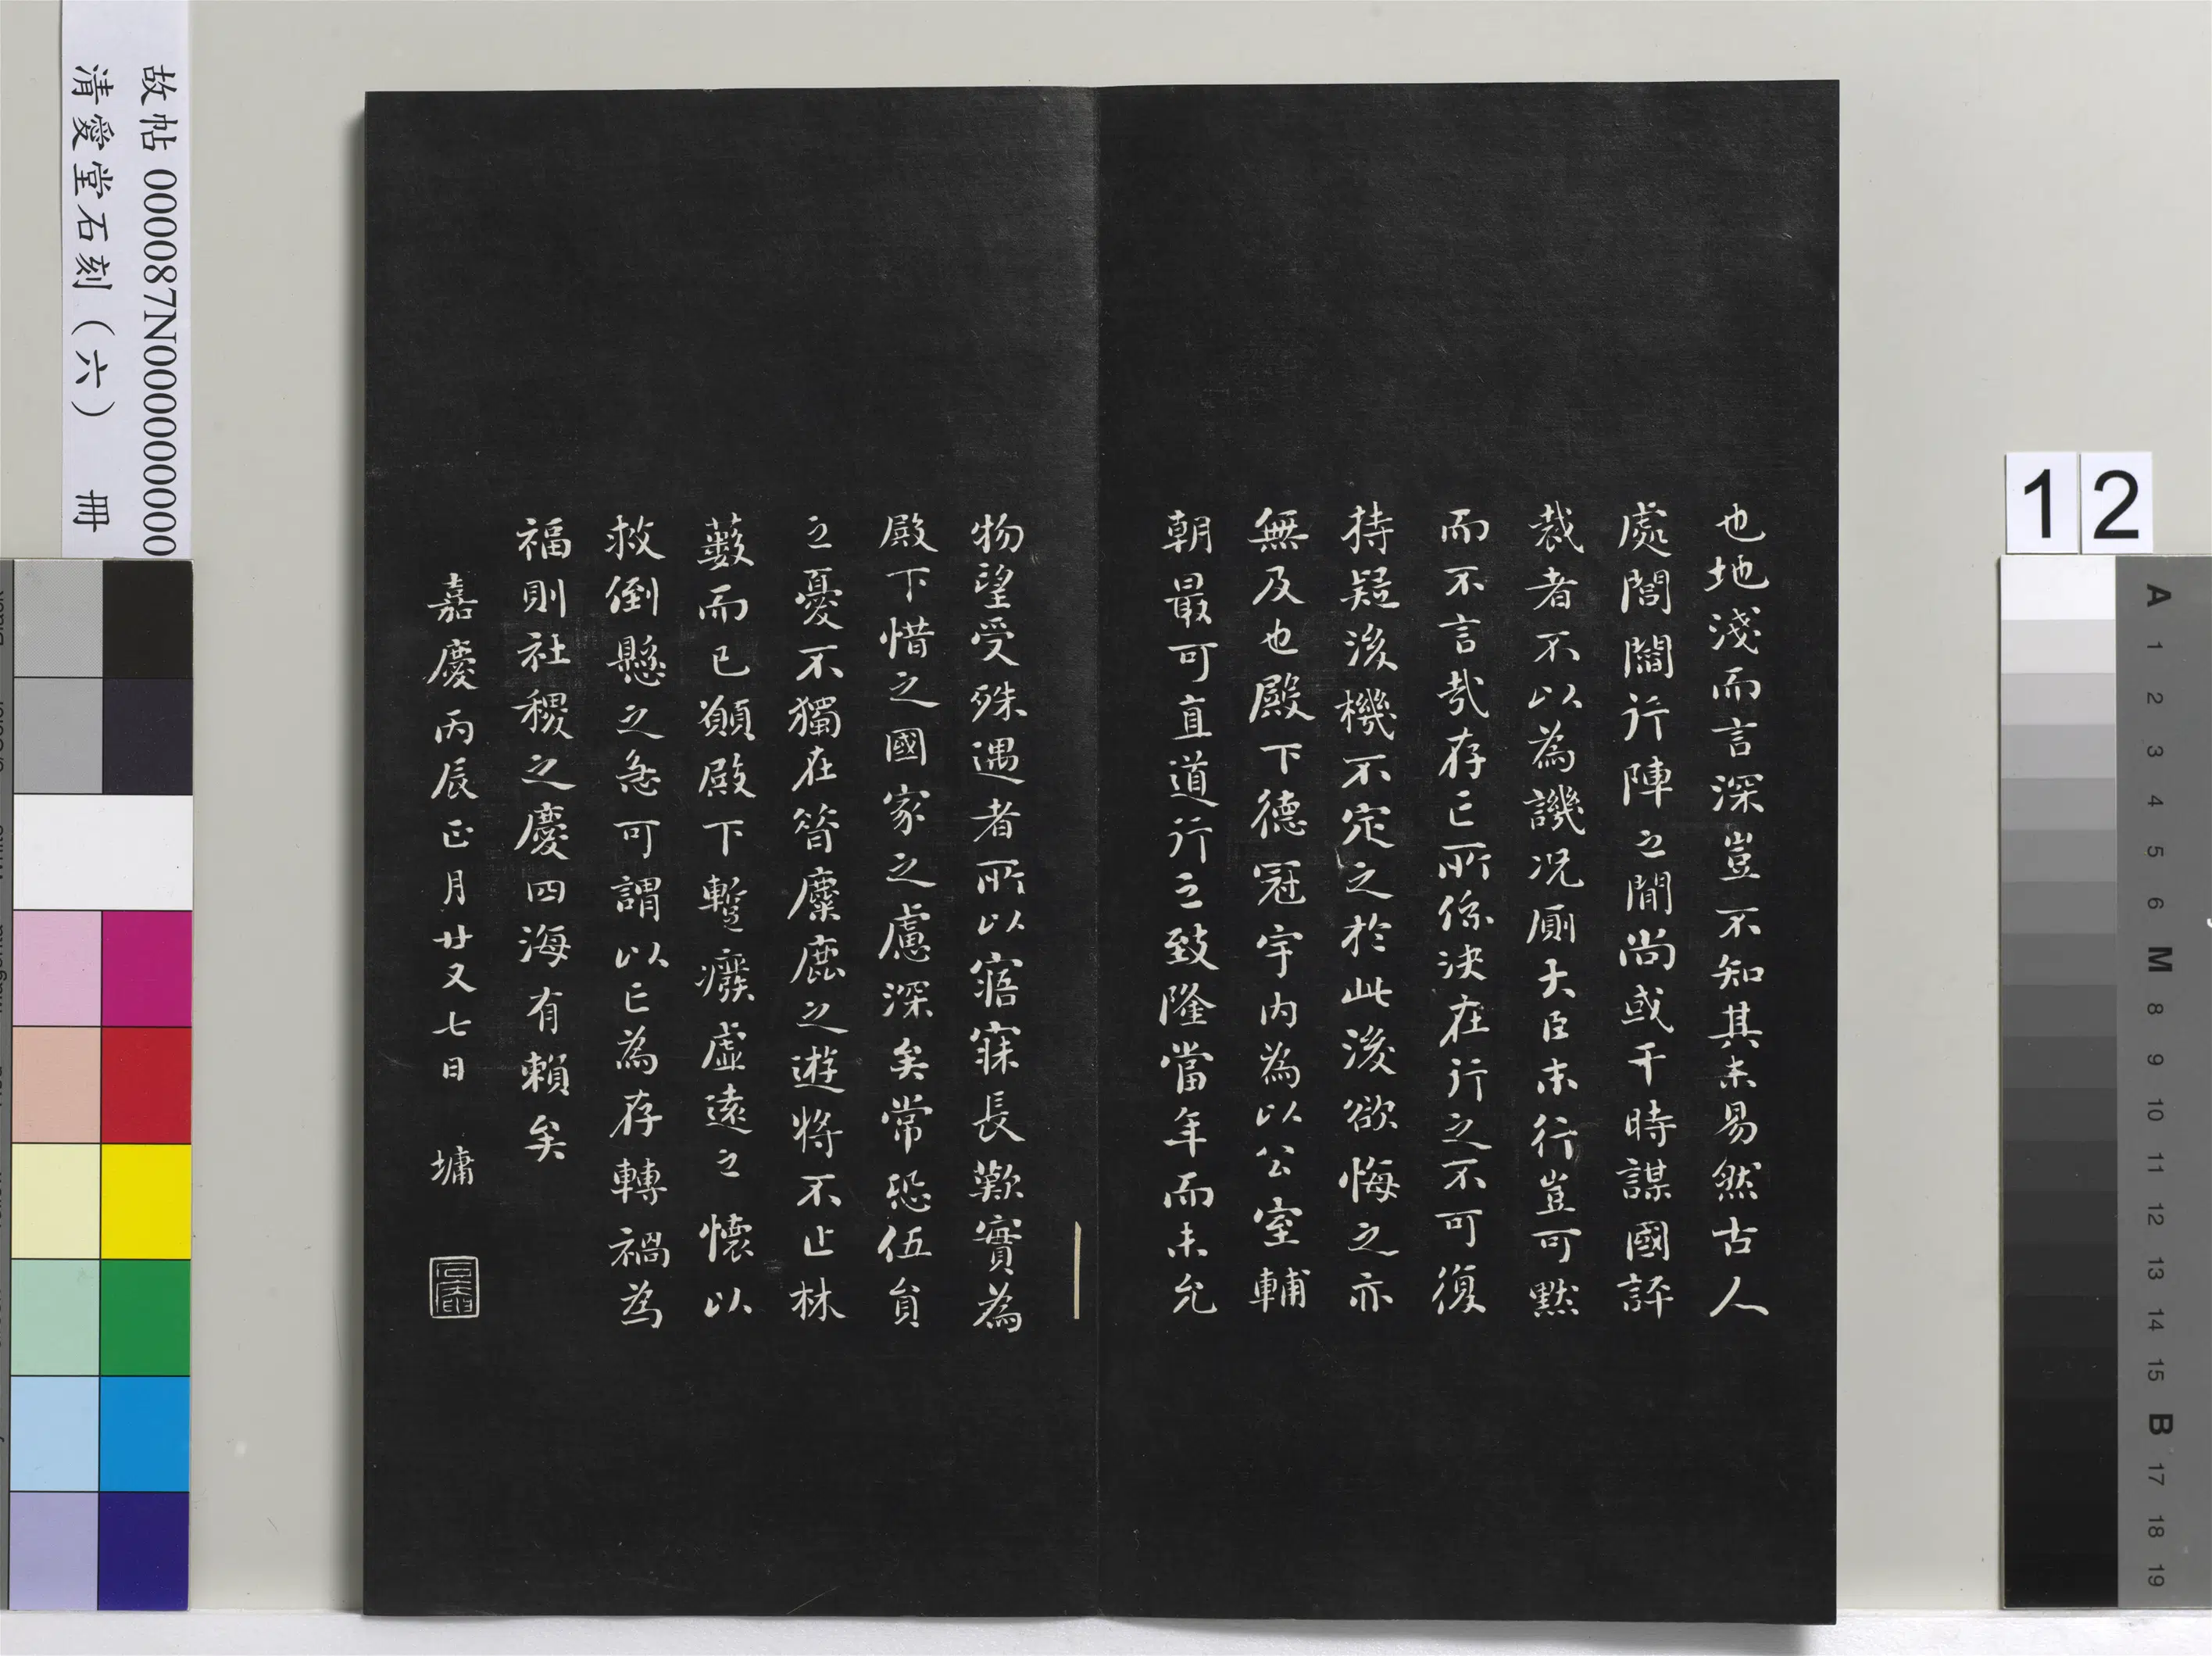 也地淺而言深豈不知其未易然古人
處閭閻行陣之間尚或干時謀國評
裁者不以為譏况廁大臣末行豈可默
而不言哉存亡所係決在行之不可復
持疑後機不定之於此後欲悔之亦
無及也殿下德冠宇內為以公室輔
朝最可直道行之致隆當年而未允
物望受殊遇者所以寤寐長歎實為
殿下惜之國家之慮深矣常恐伍員
之憂不獨在昔麋鹿之遊將不止林
藪而已願殿下蹔癈虛遠之懷以
救倒懸之急可謂以亡為存轉禍為
福則社稷之慶四海有賴矣
嘉慶丙辰正月廿又七日 墉
石庵
故帖 000087N000000000
清愛堂石刻(六) 冊
12
A 1 2 3 4 5 6 M 8 9 10 11 12 13 14 15 B 17 18 19